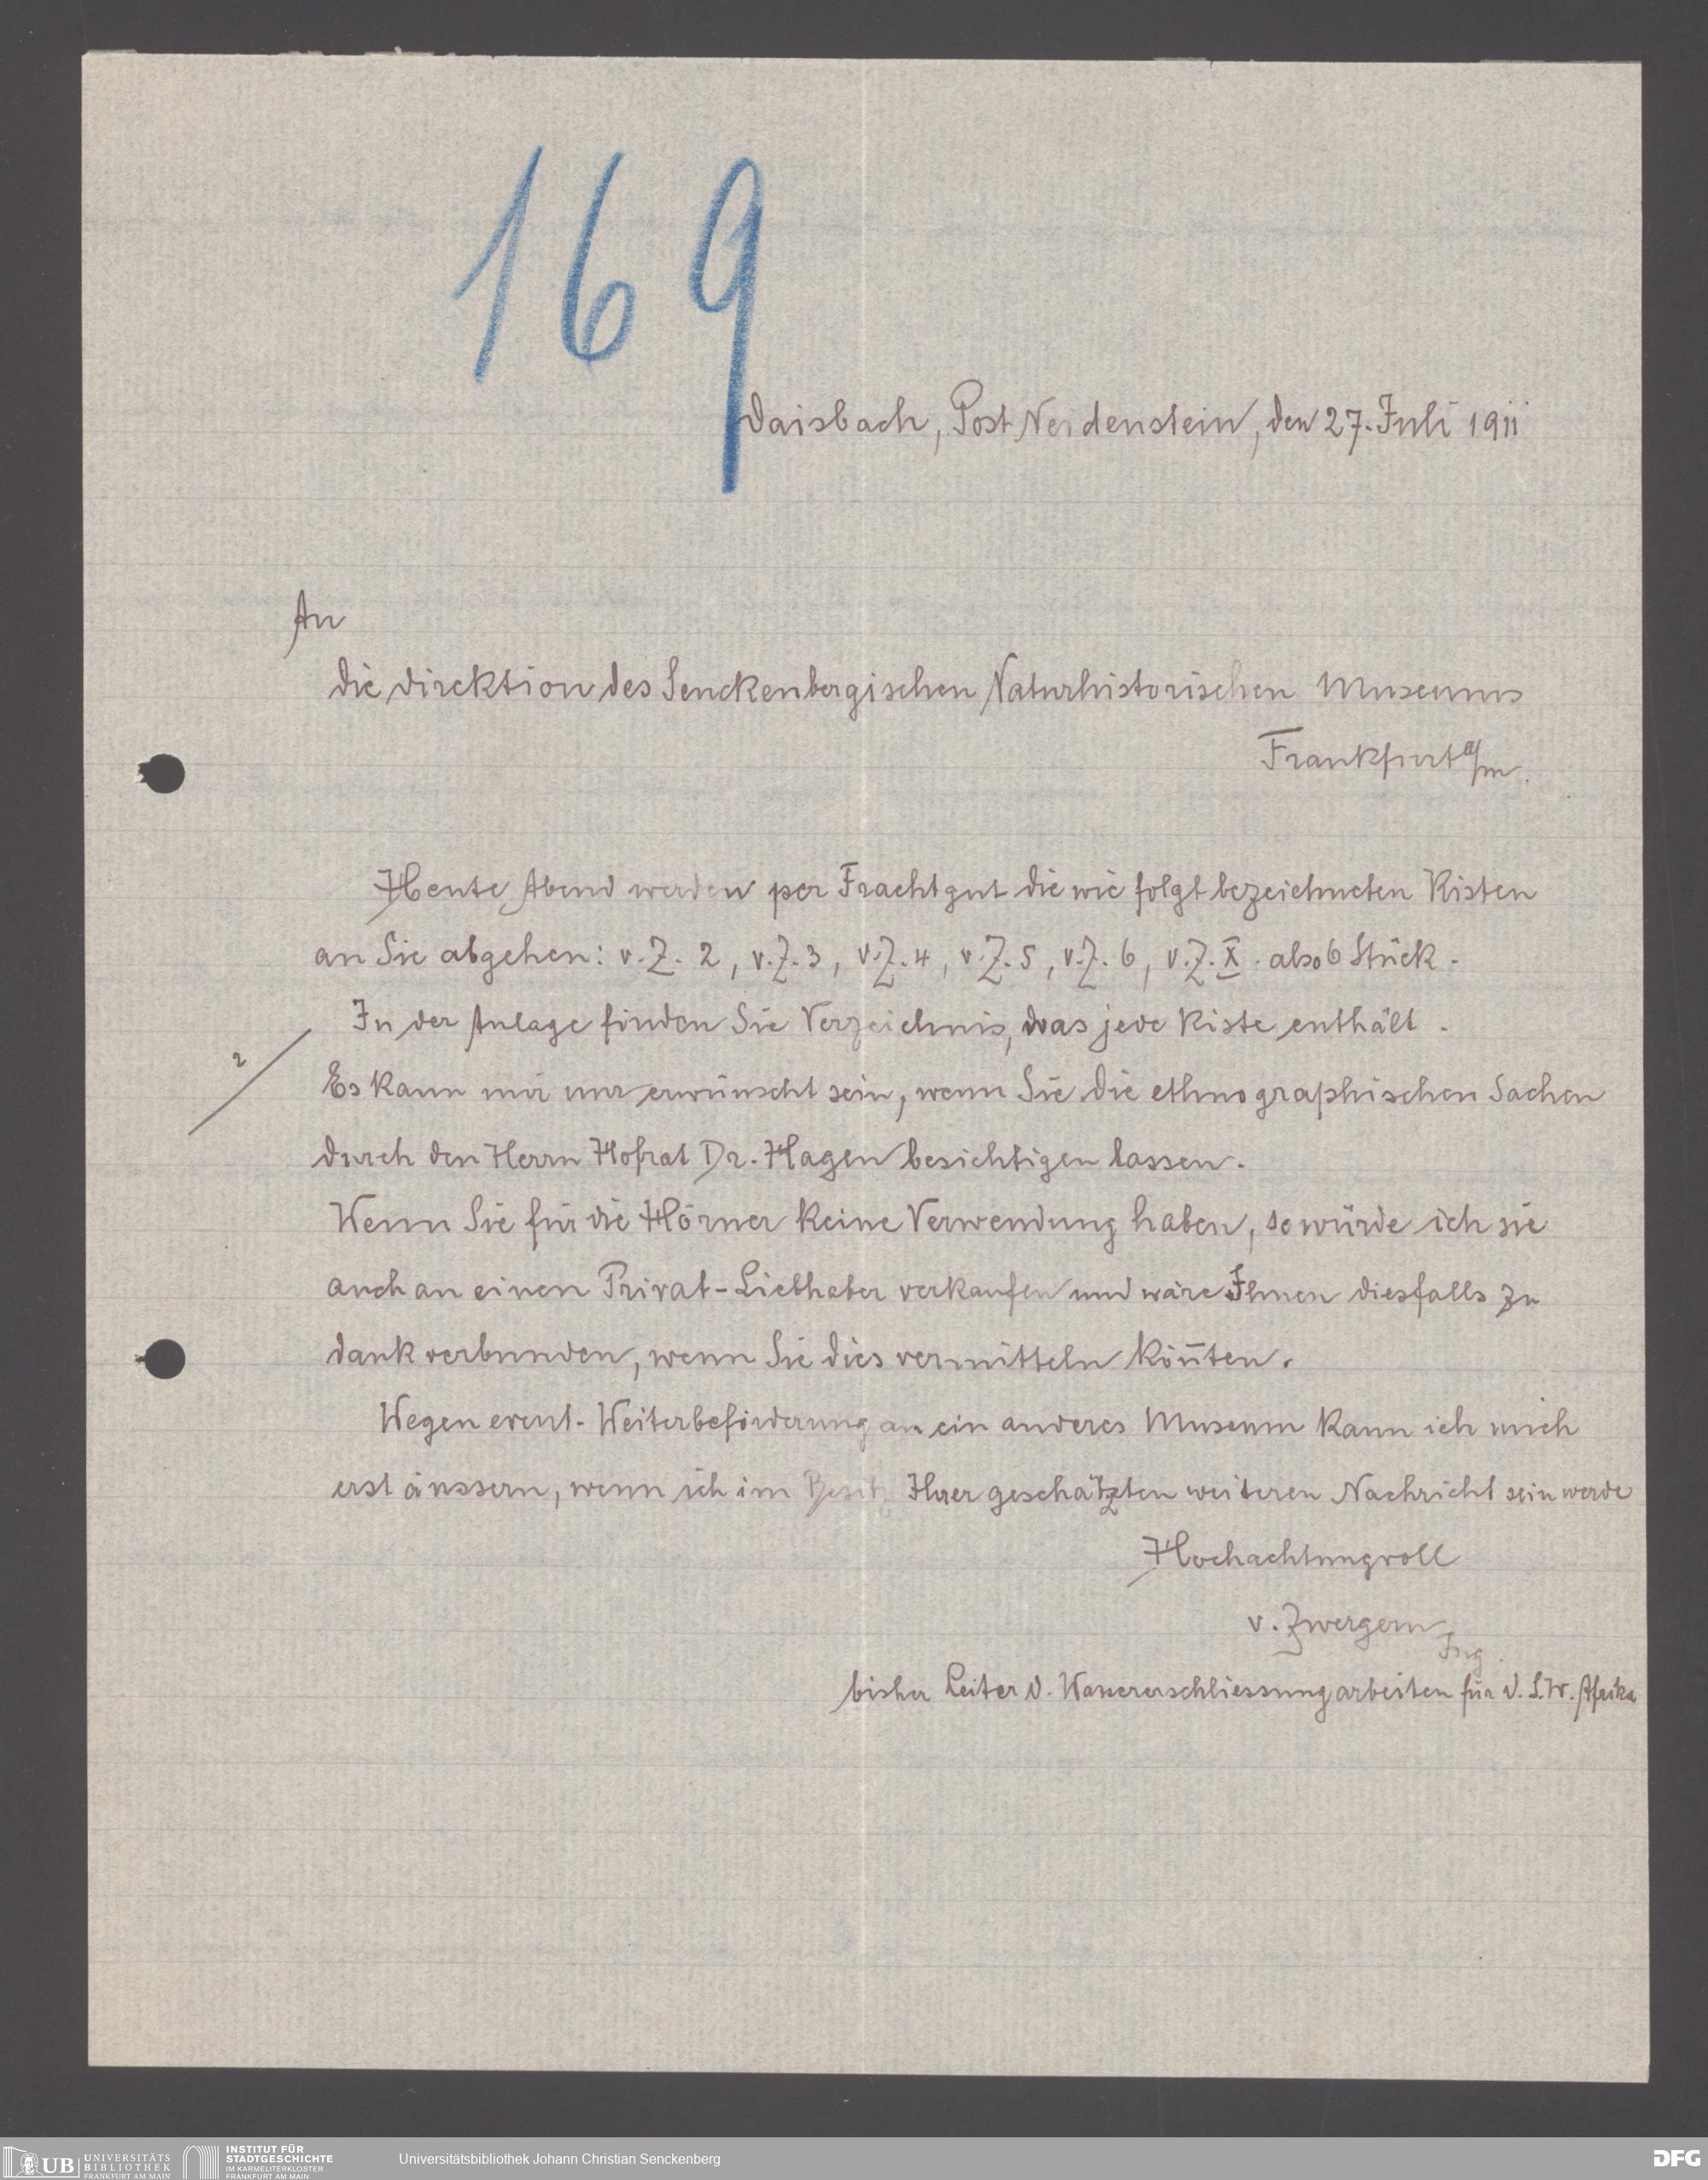 169
Daisbach, Post Neidenstein, den 27. Juli 1911
An
die Direktion des Senckenbergischen Naturhistorischen Museums
Frankfurt a/m.
Heute Abend werden per Frachtgut die wie folgt bezeichneten Kisten
an Sie abgehen: v. Z. 2, v. Z. 3, v. Z. 4, v. Z. 5, v. Z. 6, v. Z. X. also 6 Stück.
In der Anlage finden Sie Verzeichnis, was jede Kiste enthält.
2
Es kann mir nur erwünscht sein, wenn Sie die ethnographischen Sachen
durch den Herrn Hofrat Dr. Hagen besichtigen lassen.
Wenn Sie für die Hörner keine Verwendung haben, so würde ich sie
auch an einen Privat-Liebhaber verkaufen und wäre Ihnen diesfalls zu
dank verbunden, wenn Sie dies vermitteln kön̄ten.
Wegen event. Weiterbeförderung an ein anderes Museum kann ich mich
erst äussern, wenn ich im Besitz Ihrer geschätzten weiteren Nachricht sein werde
Hochachtungvoll
v. Zwergern
Ing.
bisher Leiter d. Wassererschliessungarbeiten für d. S. W. Afrika
UB UNIVERSITÄTS BIBLIOTHEK FRANKFURT AM MAIN
INSTITUT FÜR STADTGESCHICHTE IM KARMELITERKLOSTER FRANKFURT AM MAIN
Universitätsbibliothek Johann Christian Senckenberg
DFG